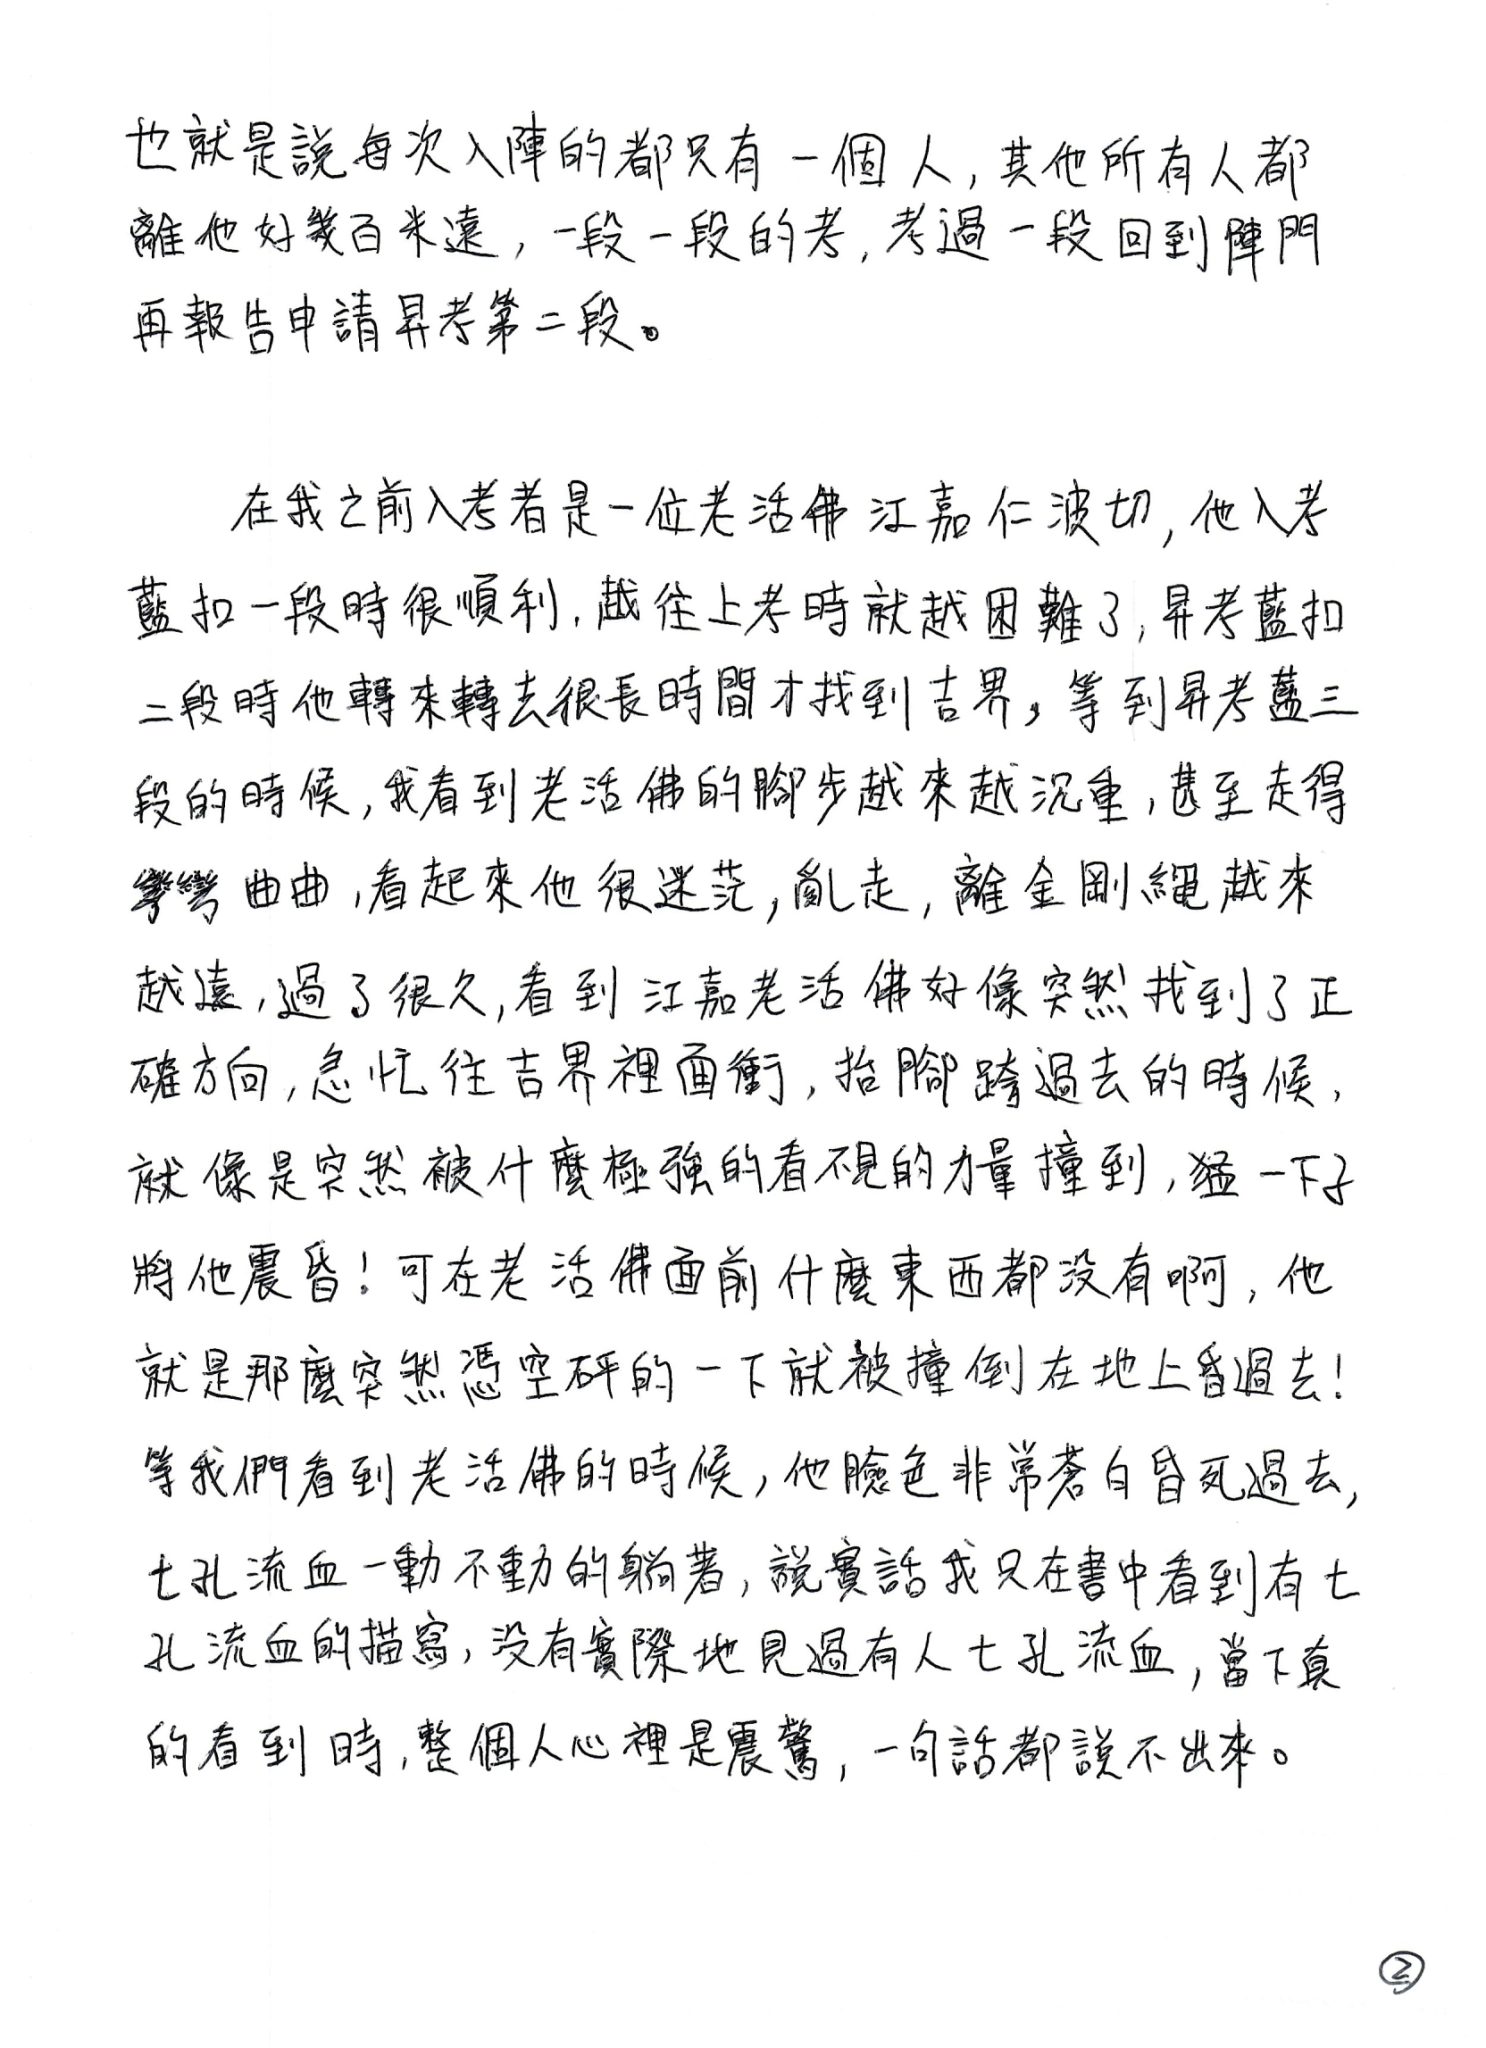 也就是說每次入陣的都只有一個人，其他所有人都
離他好幾百米遠，一段一段的考，考過一段回到陣門
再報告申請昇考第二段。
在我之前入考者是一位老活佛江嘉仁波切，他入考
藍扣一段時很順利，越往上考時就越困難了，昇考藍扣
二段時他轉來轉去很長時間才找到吉界，等到昇考藍三
段的時候，我看到老活佛的腳步越來越沉重，甚至走得
彎彎曲曲，看起來他很迷茫，亂走，離金剛繩越來
越遠，過了很久，看到江嘉老活佛好像突然找到了正
確方向，急忙往吉界裡面衝，抬腳跨過去的時候，
就像是突然被什麼極強的看不見的力量撞到，猛一下子
將他震昏！可在老活佛面前什麼東西都没有啊，他
就是那麼突然憑空砰的一下就被撞倒在地上昏過去！
等我們看到老活佛的時候，他臉色非常蒼白昏死過去，
七孔流血一動不動的躺著，說實話我只在書中看到有七
孔流血的描寫，没有實際地見過有人七孔流血，當下真
的看到時，整個人心裡是震驚，一句話都說不出來。
②